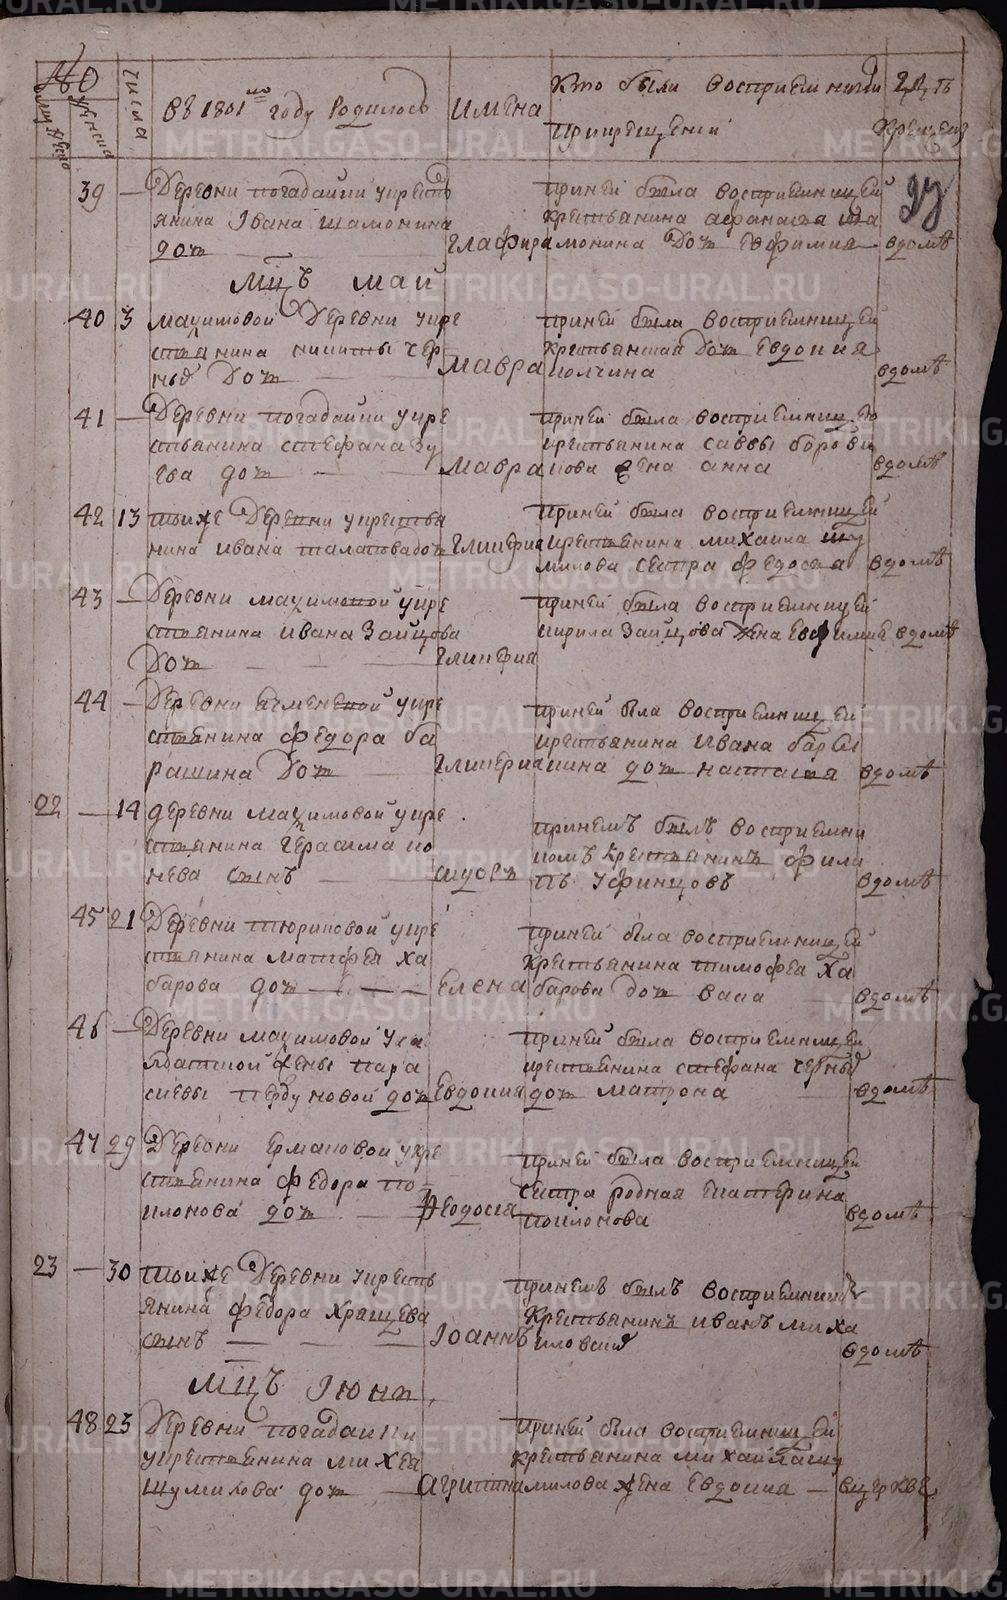 №
мужеска
женска
числа
въ 1801мъ году Родилось
имена
кто были восприемники
прикрещении
где
крещен
27
39 — Деревни погадайки укресть
янина Ивана Шамонина
дочь — Глафира
при ней была восприемницей
крестьянина афанасья Ша
монина дочь Евфимия вдомѣ
Мцъ май
40 3 макимовой Деревни укре
стьянина никиты чер
ных дочь — Мавра
при ней была восприемницей
крестьянская дочь Евдокия
вдомѣ
41 — Деревни погадайки укре
стьянина стефана Зу
ева дочь — Мавра
при ней была восприемницею
крестьянина саввы борови
кова жена анна вдомѣ
42 13 тойже Деревни укрестья
нина ивана дочь Гликерия
при ней была восприемницей
крестьянина михаила шу
милова сестра федосья вдомѣ
43 — Деревни макимовой укре
стьянина ивана Зайцова
дочь — Гликерия
при ней была восприемницей
кирила Зайцова жена Евфимия вдомѣ
44 — Деревни укре
стьянина федора ба
рашина дочь — Гликерия
при ней была восприемницей
крестьянина ивана бары
шина дочь настасья вдомѣ
22 — 14 деревни макимовой укре
стьянина герасима ко
нева сынъ — сидоръ
при немъ былъ восприемни
комъ крестьянинъ фили
пъ Уфинцовъ вдомѣ
45 21 Деревни тюриковой укре
стьянина матфея ха
барова дочь — Елена
при ней была восприемницей
крестьянина тимофея ха
барова дочь васа вдомѣ
46 — Деревни макимовой у
лдатской жены пара
скевы дочь Евдокия
при ней была восприемницей
крестьянина стефана черных
дочь матрона вдомѣ
47 29 Деревни ермаковой укре
стьянина федора по
клонова дочь — Феодосия
при ней была восприемницей
сестра родная Екатерина
поклонова вдомѣ
23 — 30 тойже Деревни укресть
янина федора хращева
сынъ — Іоаннъ
при немъ былъ восприемник
крестьянинъ иванъ миха
вдомѣ
Мцъ Июнь
48 23 Деревни погадайки
укрестьянина михея
шумилова дочь — Агрипина
при ней была восприемницей
крестьянина михайла шу
милова жена Евдокия — вцеркве
METRIKI.GASO-URAL.RU